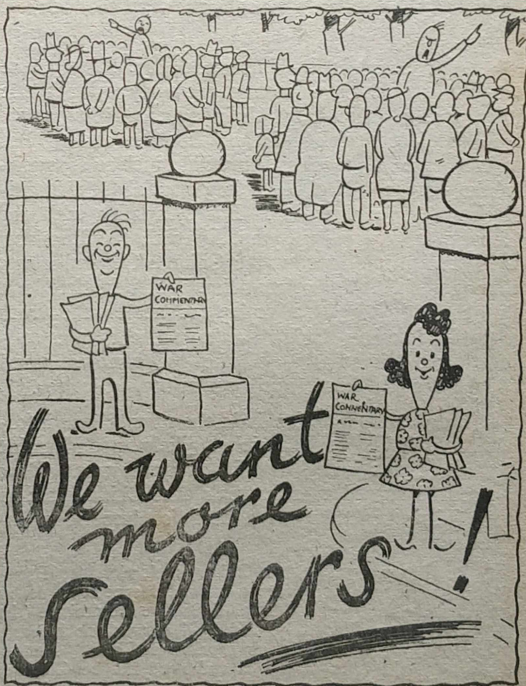 WAR
COMMENTARY
WAR
COMMENTARY
We want
more
sellers!